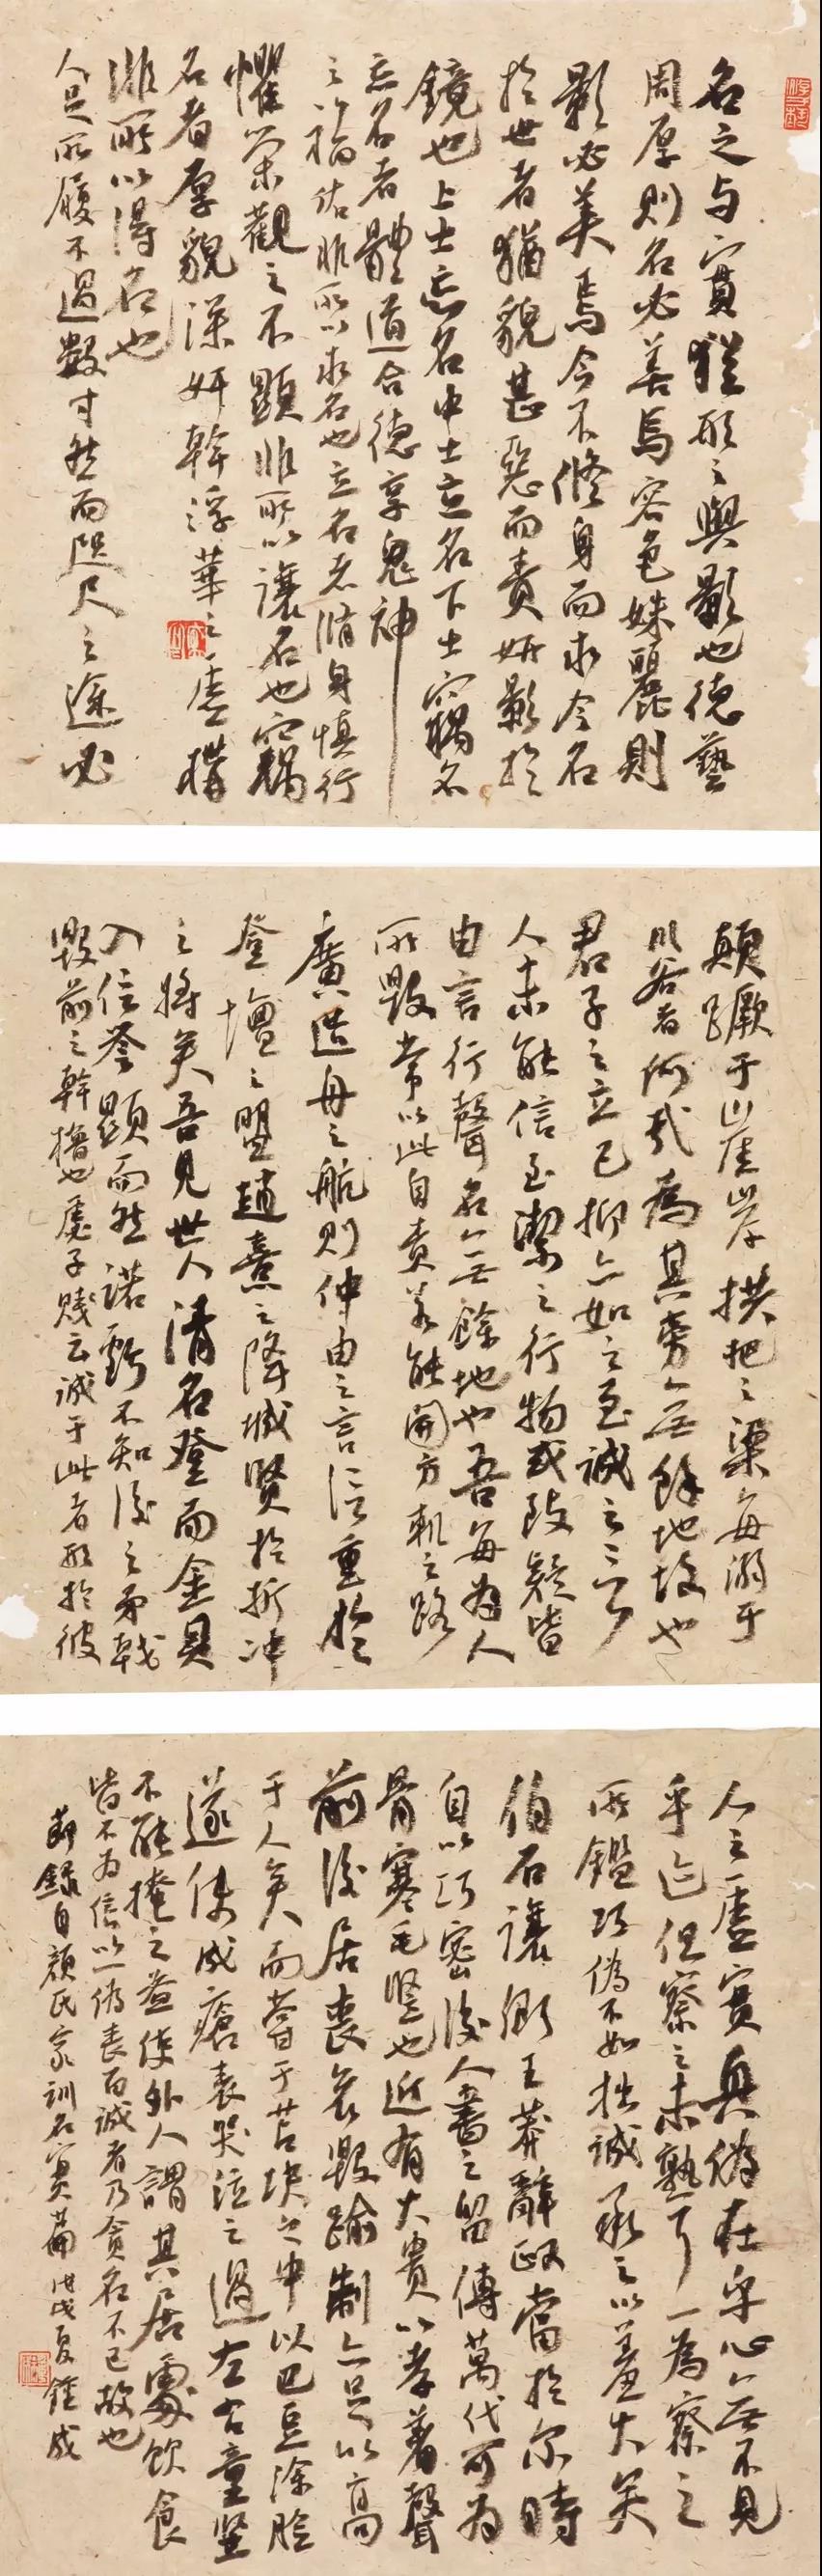 名之与實猶形之與影也德藝
周厚则名必善焉容色姝麗則
影必美焉今不脩身而求令名
於世者猶貌甚惡而責妍影於
鏡也上士忘名中士立名下士竊名
忘名者體道合德享鬼神
之福佑非所以求名也立名者脩身慎行
懼榮觀之不顯非所以讓名也竊
名者厚貌深奸幹浮華之虛構
非所以得名也
人足所履不過數寸然而咫尺之途必
顛蹶于崖岸拱把之梁每溺于
川谷者何哉為其旁無餘地故也
君子之立己抑亦如之至誠之言
人未能信至潔之行物或致疑皆
由言行聲名無餘地也吾每為人
所毀常以此自責若能開方軌之路
廣造舟之航则仲由之言信重於
登壇之盟趙熹之降城賢於折冲
之將矣吾見世人清名登而金貝
入信譽顯而然諾虧不知後之矛戟
毀前之幹櫓也虙子賤云诚于此者形於彼
人之虛實真偽在乎心無不見
乎迹但察之未熟耳一為察之
所鑑巧偽不如拙誠承之以羞大矣
伯石讓卿王莽辭政當於尔時
自以巧密後人書之留傳萬代可为
骨寒毛竖也近有大貴以孝著聲
前後居喪哀毀踰制亦足以高
于人矣而嘗于苫块之中以巴豆涂臉
遂使成瘡表哭泣之過左右童竖
不能掩之益使外人謂其居處饮食
皆不为信以一偽丧百誠者乃貪名不已故也
節錄自颜氏家训名實篇 戊戌夏鍾成